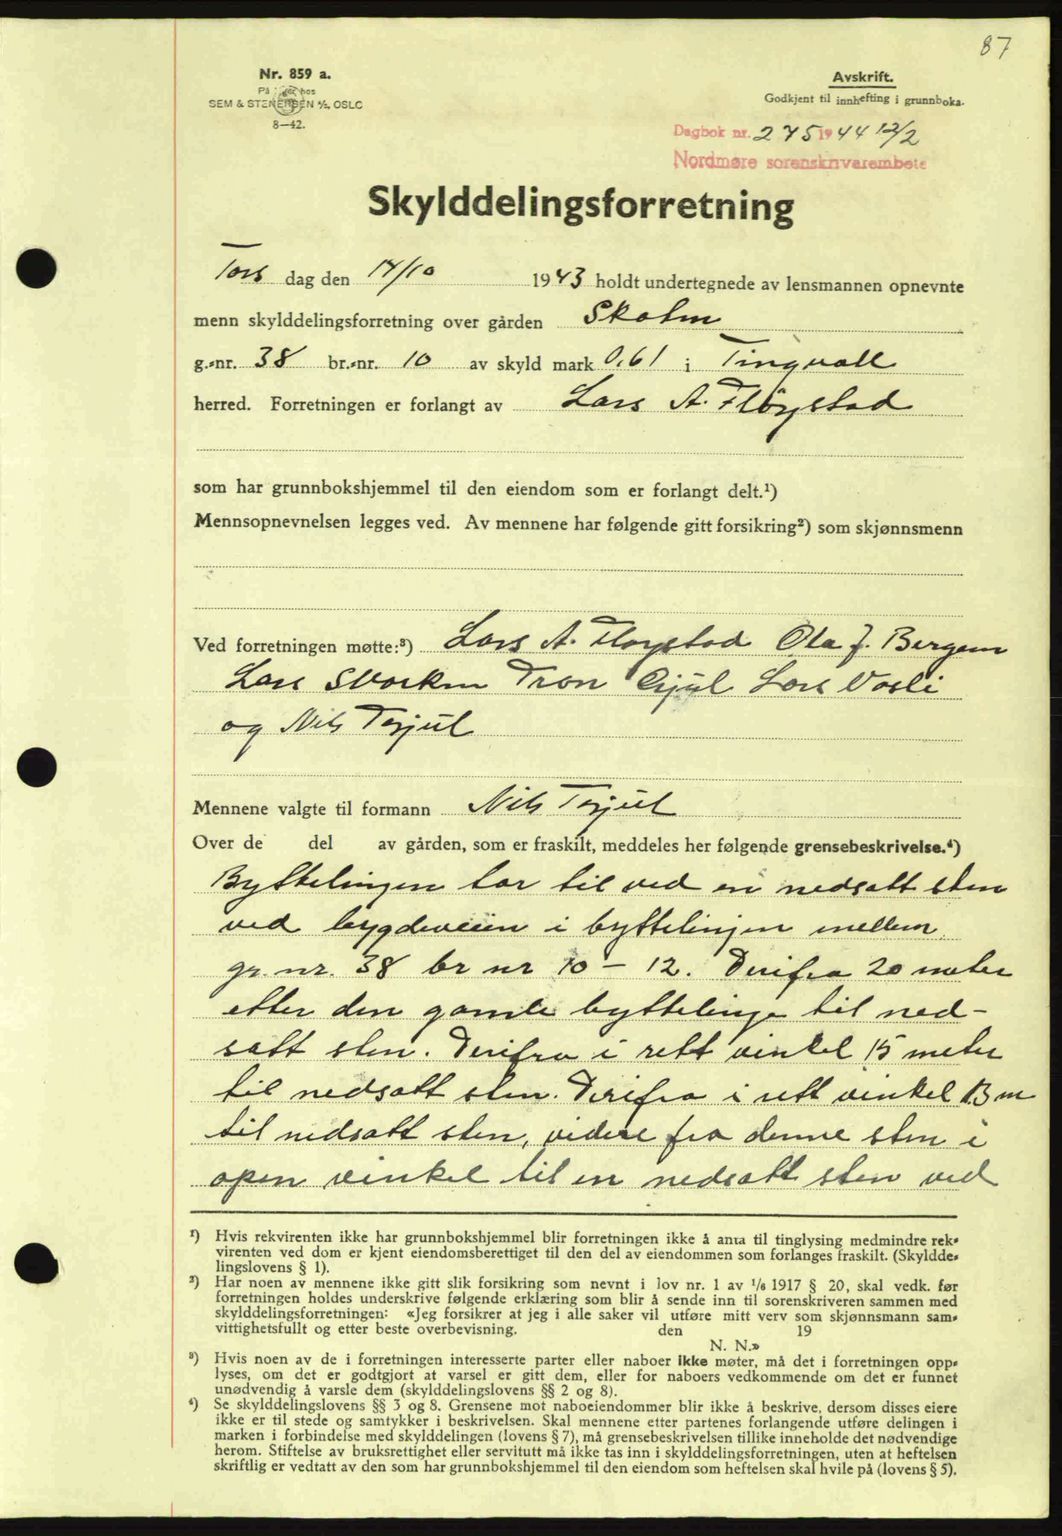 87
Nr. 859 a.
SEM & STENERSEN A/S, OSLO
8—42.
Avskrift.
Godkjent til innhefting i grunnboka.
Dagbok nr. 275 1944 12/2
Nordmøre sorenskriverembete
Skylddelingsforretning
Tors dag den 14/10 1943 holdt undertegnede av lensmannen opnevnte
menn skylddelingsforretning over gården Skolm
g.-nr. 38 br.-nr. 10 av skyld mark 0,61 i Tingvoll
herred. Forretningen er forlangt av Lars A. Fløystad
som har grunnbokshjemmel til den eiendom som er forlangt delt.¹)
Mennsopnevnelsen legges ved. Av mennene har følgende gitt forsikring²) som skjønnsmenn
Ved forretningen møtte:³) Lars A. Fløystad Ola J. Bergem
Lars Tron Gjul Lars
og Nils Torjul
Mennene valgte til formann Nils Torjul
Over de del av gården, som er fraskilt, meddeles her følgende grensebeskrivelse.⁴)
Byttelinjen tar til ved en nedsatt sten
ved bygdeveien i byttelinjen mellem
gr. nr. 38 br nr 10 – 12. Derifra 20 meter
etter den gamle byttelinje til ned-
satt sten. Derifra i rett vinkel 15 meter
til nedsatt sten. Derifra i rett vinkel 13 m
til nedsatt sten, videre fra denne sten i
open vinkel til en nedsatt sten ved
¹) Hvis rekvirenten ikke har grunnbokshjemmel blir forretningen ikke å anta til tinglysing medmindre rek-
virenten ved dom er kjent eiendomsberettiget til den del av eiendommen som forlanges fraskilt. (Skyldde-
lingslovens § 1).
²) Har noen av mennene ikke gitt slik forsikring som nevnt i lov nr. 1 av 1/6 1917 § 20, skal vedk. før
forretningen holdes underskrive følgende erklæring som blir å sende inn til sorenskriveren sammen med
skylddelingsforretningen: «Jeg forsikrer at jeg i alle saker vil utføre mitt verv som skjønnsmann sam-
vittighetsfullt og etter beste overbevisning. den 19
N. N.»
³) Hvis noen av de i forretningen interesserte parter eller naboer ikke møter, må det i forretningen opp-
lyses, om det er godtgjort at varsel er gitt dem, eller for naboers vedkommende om det er funnet
unødvendig å varsle dem (skylddelingslovens §§ 2 og 8).
⁴) Se skylddelingslovens §§ 3 og 8. Grensene mot naboeiendommer blir ikke å beskrive, dersom disses eiere
ikke er til stede og samtykker i beskrivelsen. Skal mennene etter partenes forlangende utføre delingen i
marken i forbindelse med skylddelingen (lovens § 7), må grensebeskrivelsen tillike inneholde det nødvendige
herom. Stiftelse av bruksrettighet eller servitutt må ikke tas inn i skylddelingsforretningen, uten at heftelsen
skriftlig er vedtatt av den som har grunnbokshjemmel til den eiendom som heftelsen skal hvile på (lovens § 5).